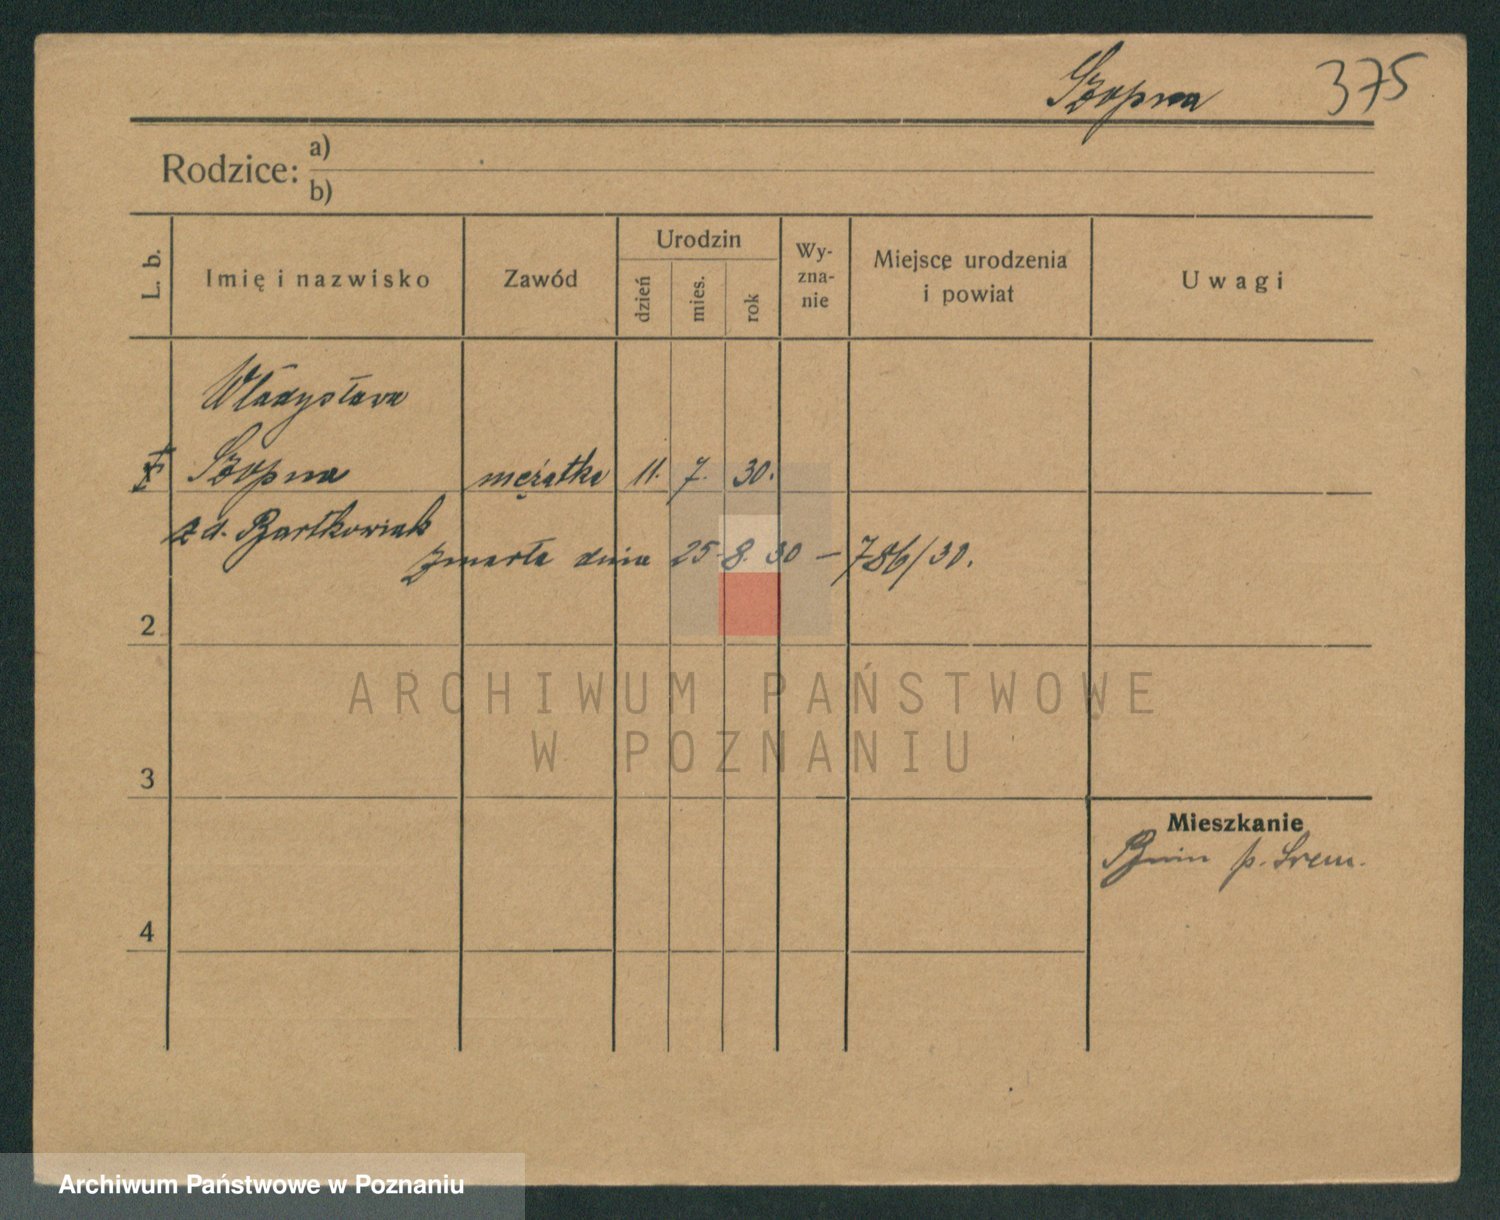 Szopna 375
Rodzice: a)
b)
L. b.
Imię i nazwisko
Zawód
Urodzin
dzień
mies.
rok
Wy-
zna-
nie
Miejsce urodzenia
i powiat
Uwagi
Władysława
Szopna mężatka 11. 7. 30.
z d. Bartkowiak
zmarła dnia 25.8.30 – 786/30.
2
ARCHIWUM PAŃSTWOWE
W POZNANIU
3
Mieszkanie
Bnin p. Śrem.
4
Archiwum Państwowe w Poznaniu